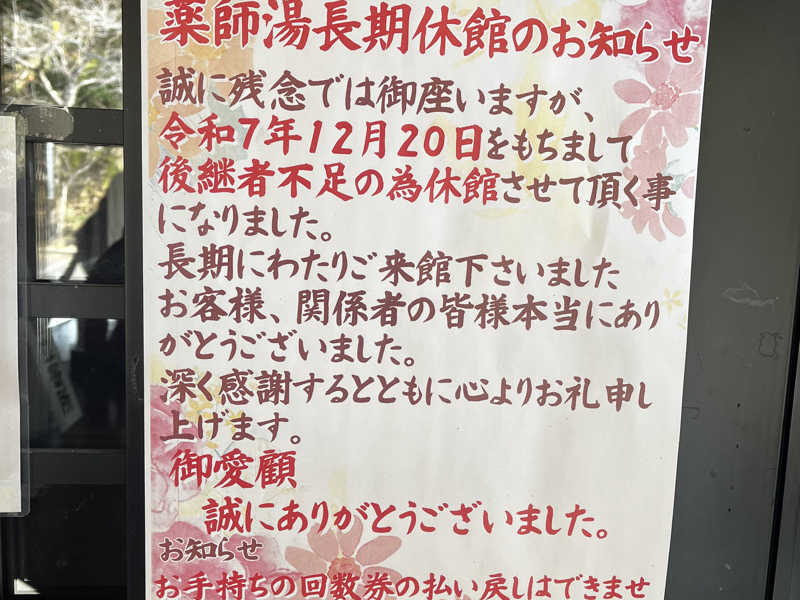 薬師湯長期休館のお知らせ
誠に残念では御座いますが、
令和7年12月20日をもちまして
後継者不足の為休館させて頂く事
になりました。
長期にわたりご来館下さいました
お客様、関係者の皆様本当にあり
がとうございました。
深く感謝するとともに心よりお礼申し
上げます。
御愛顧
誠にありがとうございました。
お知らせ
お手持ちの回数券の払い戻しはできませ